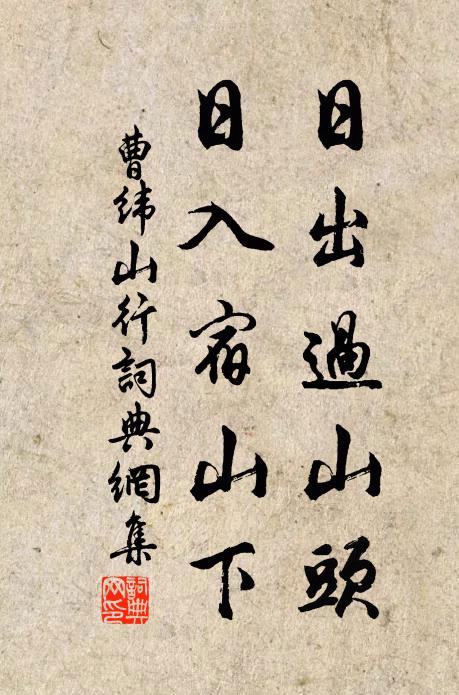 日出過山頭
日入宿山下
曹緯山行詞典網集
詞典網印